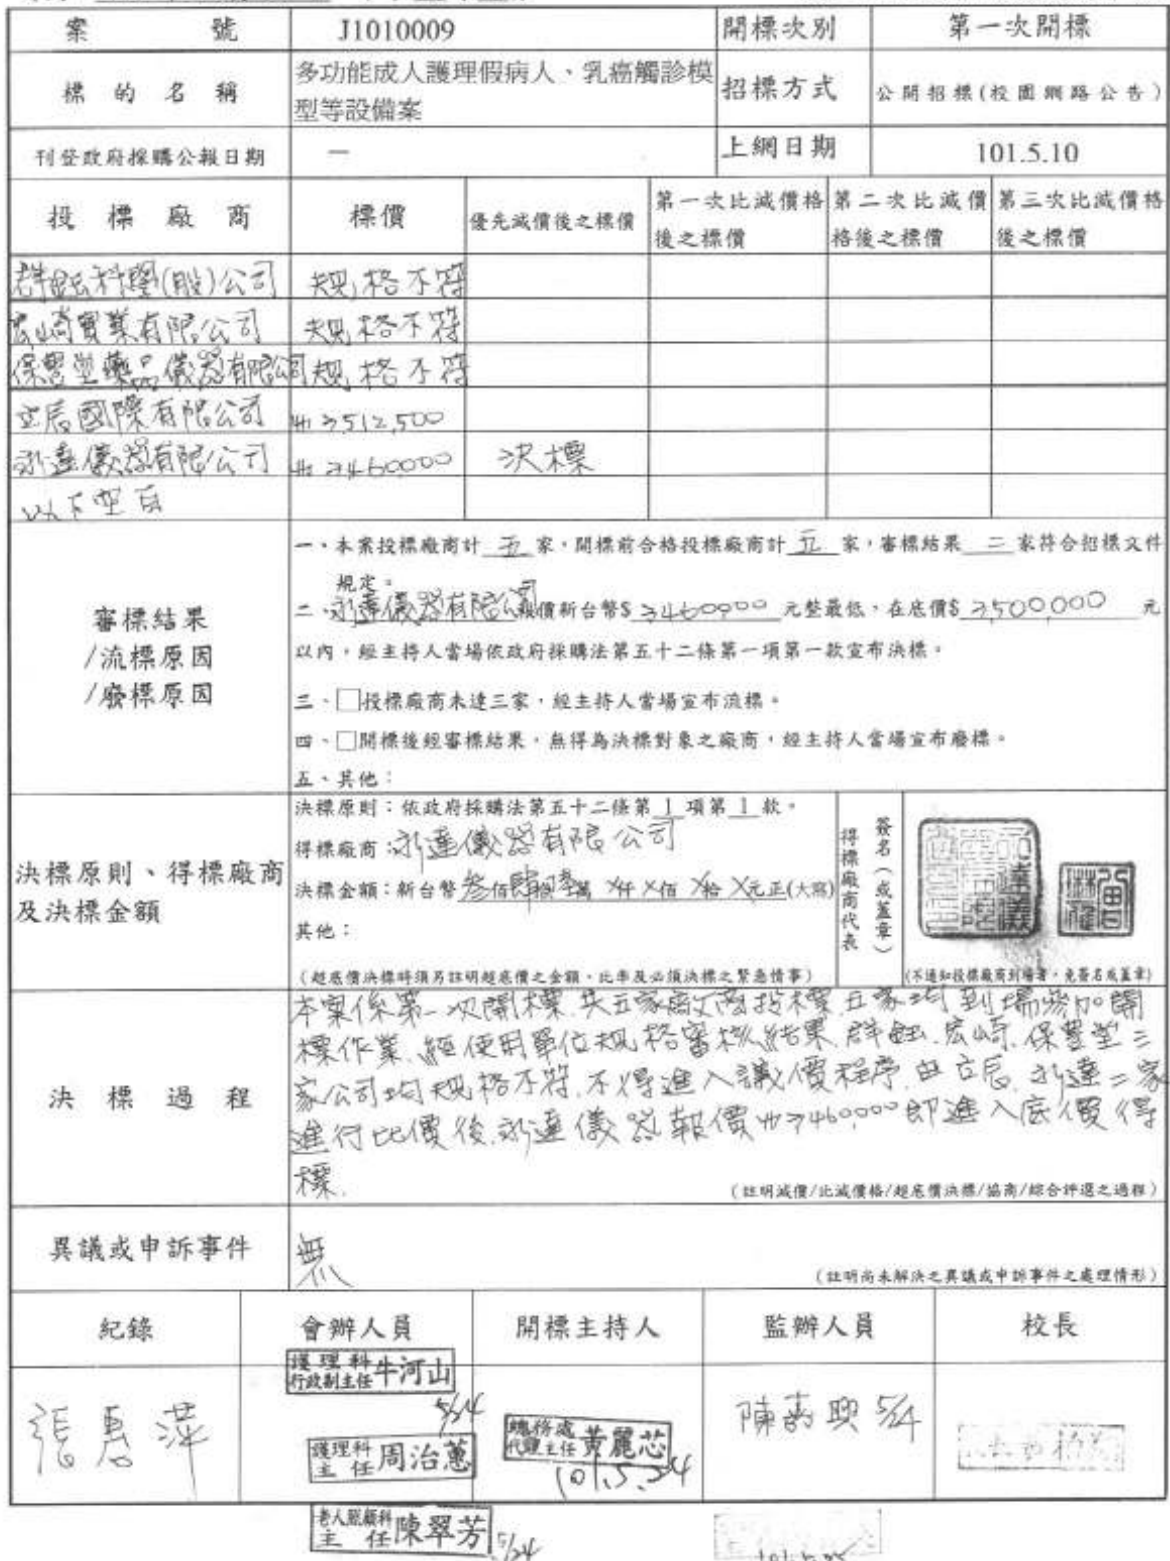 案 號 J1010009 開標次別 第一次開標
標 的 名 稱 多功能成人護理假病人、乳癌觸診模
型等設備案 招標方式 公開招標(校園網路公告)
刊登政府採購公報日期 — 上網日期 101.5.10
投 標 廠 商 標價 優先減價後之標價 第一次比減價格 第二次比減價 第三次比減價格
後之標價 格後之標價 後之標價
科學(股)公司 規格不符
宏崎實業有限公司 規格不符
保豐堂藥品儀器有限公司 規格不符
立辰國際有限公司 512,500
永達儀器有限公司 460,000 決標
以下空白
審標結果
/流標原因
/廢標原因
一、本案投標廠商計 五 家,開標前合格投標廠商計 五 家,審標結果 二 家符合招標文件
規定。
二、永達儀器有限公司報價新台幣$ 3460,000 元整最低,在底價$ 3,500,000 元
以內,經主持人當場依政府採購法第五十二條第一項第一款宣布決標。
三、□投標廠商未達三家,經主持人當場宣布流標。
四、□開標後經審標結果,無得為決標對象之廠商,經主持人當場宣布廢標。
五、其他:
決標原則、得標廠商
及決標金額
決標原則:依政府採購法第五十二條第 1 項第 1 款。
得標廠商:永達儀器有限公司
決標金額:新台幣 參佰肆拾陸萬 X仟X佰X拾X元正(大寫)
其他:
(超底價決標時須另註明超底價之金額、比率及必須決標之緊急情事)
得標廠商代表
簽名(或蓋章)
(不通知投標廠商到場者,免簽名或蓋章)
決 標 過 程
本案係第一次開標,共五家廠商投標,五家均到場參加開
標作業,經使用單位規格審核結果,群鈺、宏崎、保豐堂三
家公司均規格不符,不得進入議價程序,由立辰、永達二家
進行比價後,永達儀器報價 460,000即進入底價得
標.
(註明減價/比減價格/超底價決標/協商/綜合評選之過程)
異議或申訴事件 無
(註明尚未解決之異議或申訴事件之處理情形)
紀錄 會辦人員 開標主持人 監辦人員 校長
護理科
行政副主任 牛河山
5/24
護理科
主 任 周治蕙
總務處
代理主任 黃麗芯
101.5.24
張惠萍
陳壽興 5/24
老人照顧科
主 任 陳翠芳 5/24